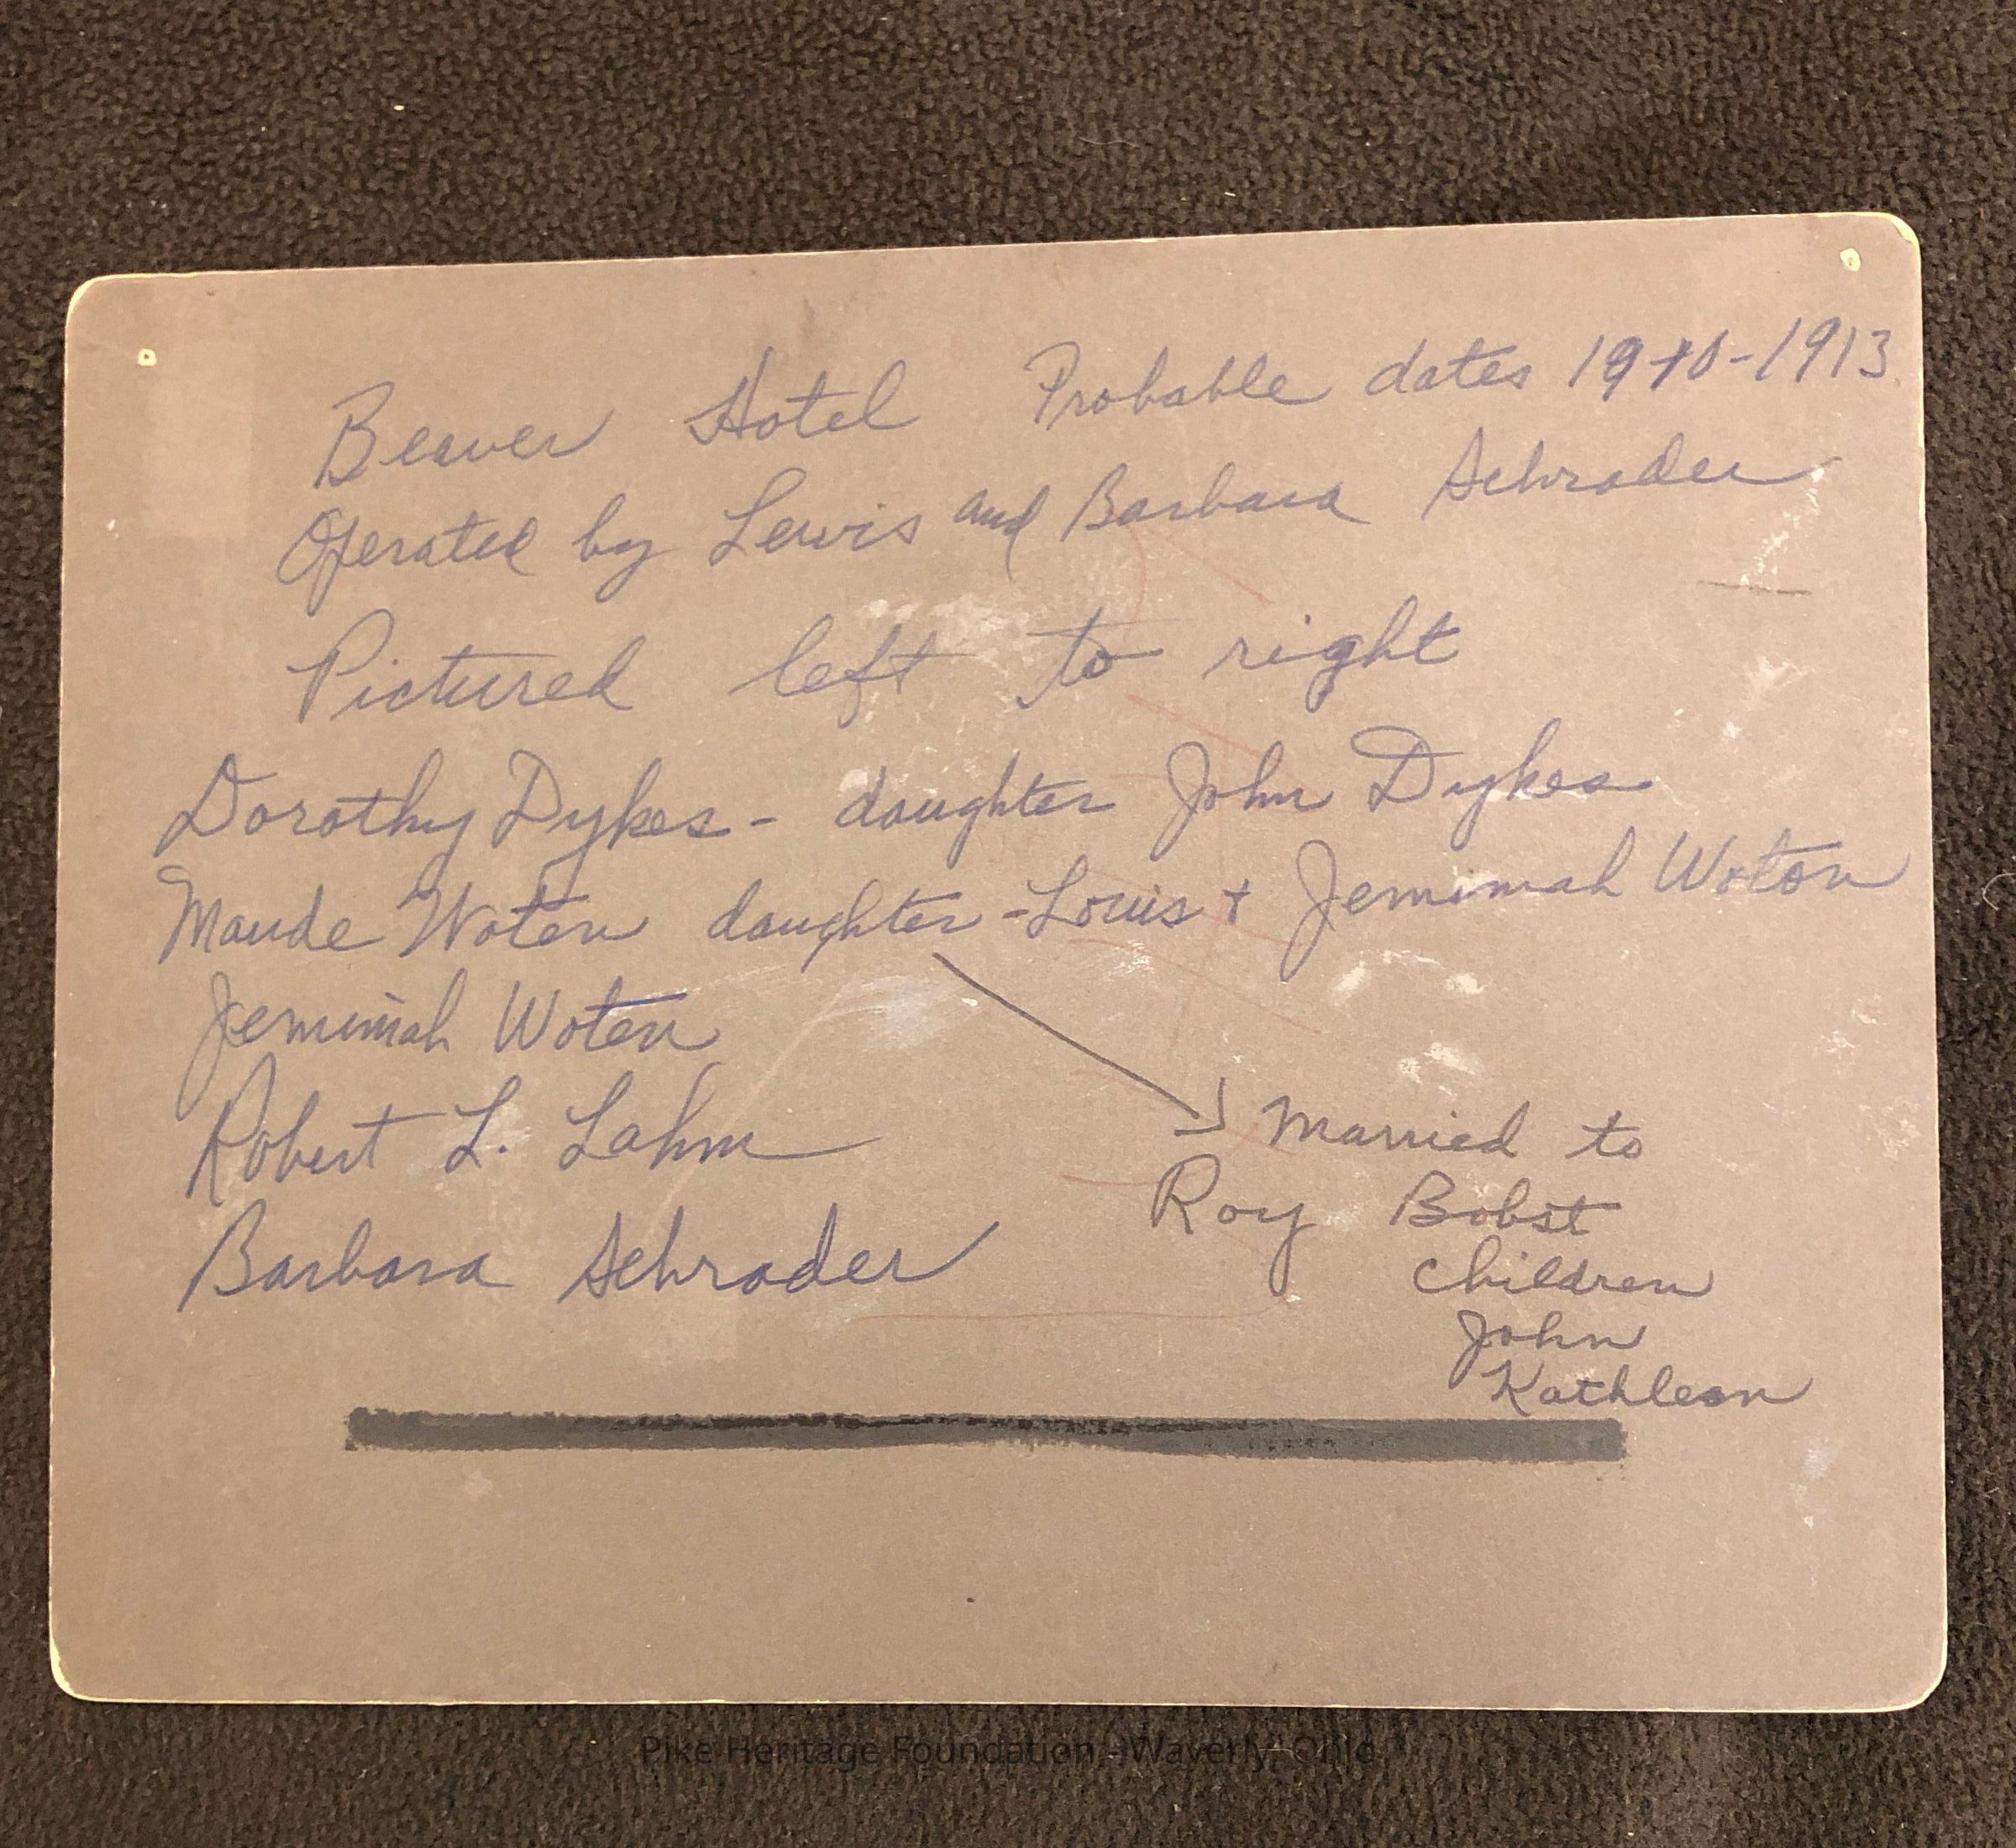 Beaver Hotel Probable dates 1910-1913
Operated by Lewis and Barbara Schrader
Pictured left to right
Dorothy Dykes - daughter John Dykes
Maude Woten daughter - Louis + Jemimah Woton
Jemimah Woten
Robert L. Lahm
Barbara Schrader
Married to
Roy Bobst
Children
John
Kathleen
Pike Heritage Foundation - Waverly, Ohio